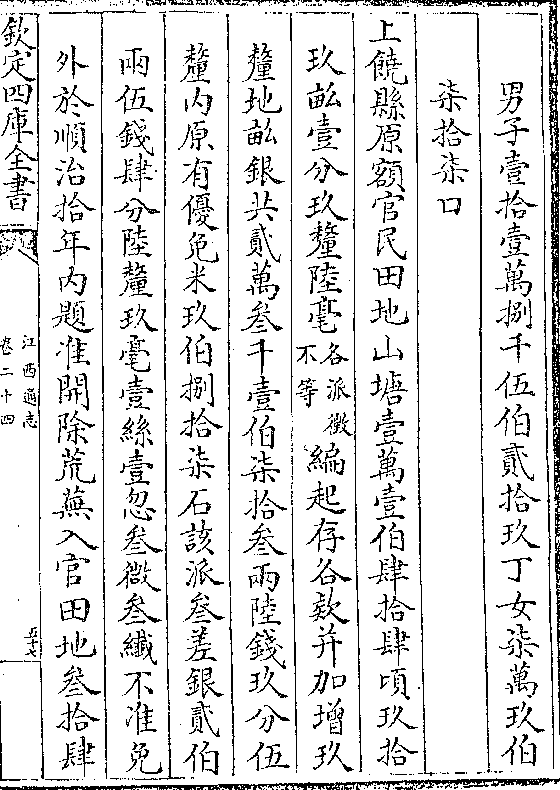 男子壹拾壹萬捌千伍伯貳拾玖丁女柒萬玖伯
柒拾柒口
上饒縣原額官民田地山塘壹萬壹伯肆拾肆頃玖拾
玖畝壹分玖釐陸毫各派徵不等編起存各款并加增玖
釐地畝銀共貳萬叁千壹伯柒拾叁兩陸錢玖分伍
釐内原有優免米玖伯捌拾柒石該派叁差銀貳伯
兩伍錢肆分陸釐玖毫壹絲壹忽叁微叁纖不准免
外於順治拾年内題准開除荒蕪入官田地叁拾肆
欽定四庫全書
江西通志
卷二十四
五十七